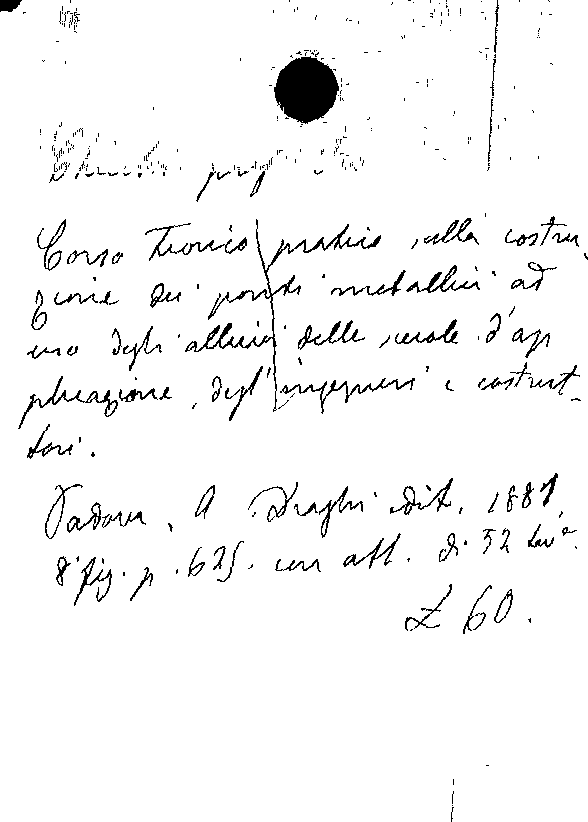 Corso teorico pratico sulla costru-
zione dei ponti metallici ad
uso degli allievi delle scuole d'ap
plicazione, degl'ingegneri e costrut-
tori.
Padova, A Draghi edit. 1887,
8° fig. p. 625. con atl. di 52 tavᵉ.
£ 60.